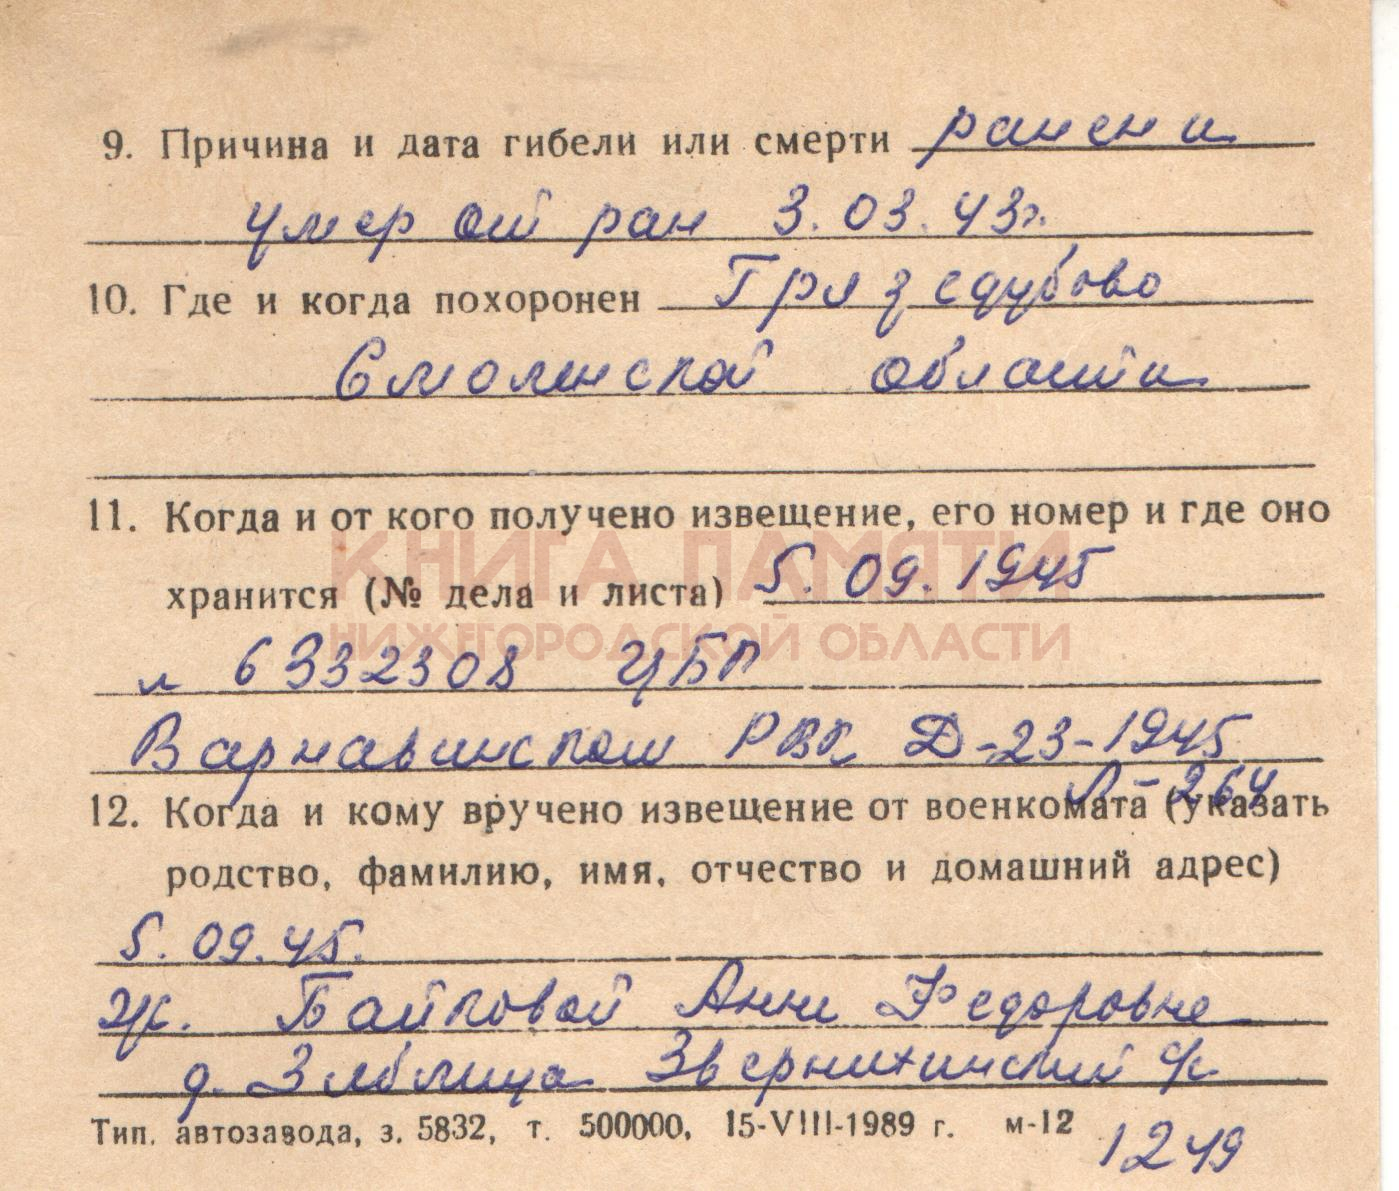 9. Причина и дата гибели или смерти ранен и
умер от ран 3.03.43г.
10. Где и когда похоронен Грязедубово
Смоленской области
11. Когда и от кого получено извещение, его номер и где оно
КНИГА ПАМЯТИ
хранится (№ дела и листа) 5.09.1945
НИЖЕГОРОДСКОЙ ОБЛАСТИ
6332308 ЦБП
Варнавинском РВК Д-23-1945
Л-264
12. Когда и кому вручено извещение от военкомата (указать
родство, фамилию, имя, отчество и домашний адрес)
5.09.45.
ж. Байковой Анне Федоровне
д.
Тип. автозавода, з. 5832, т. 500000, 15-VIII-1989 г. м-12
1249